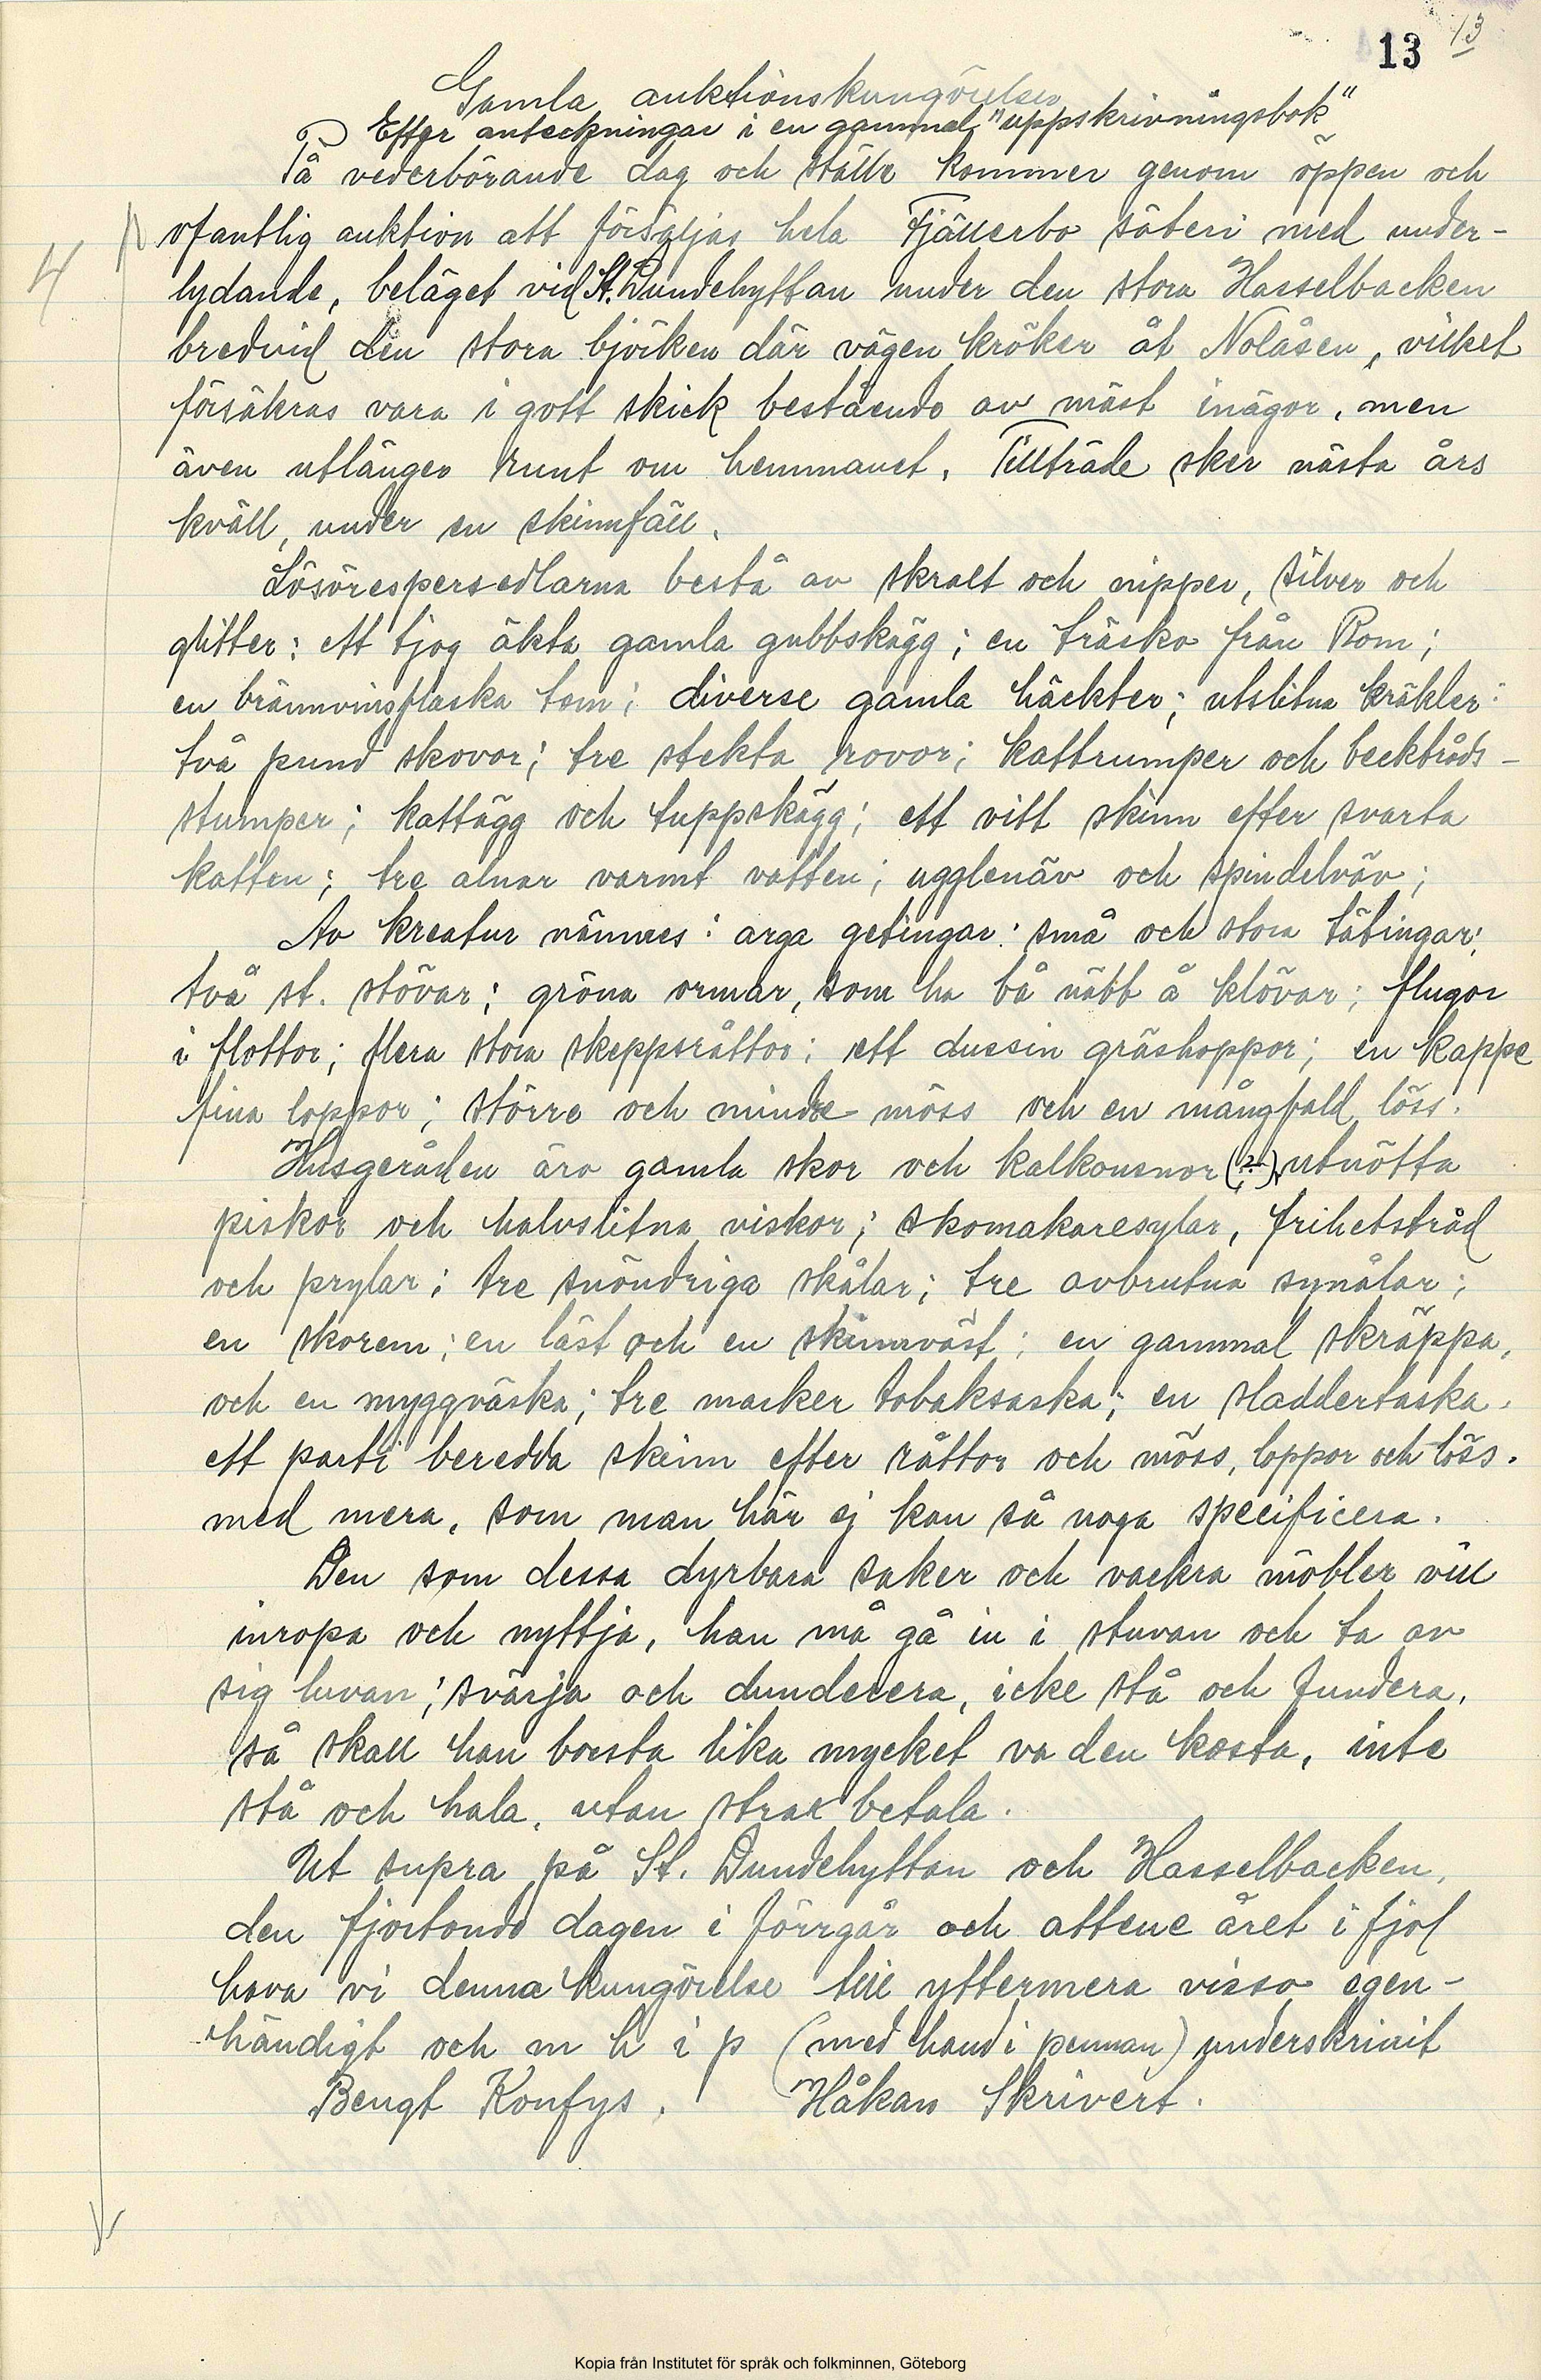 13 13
Gamla auktionskungörelser
Efter anteckningar i en gammal "uppskrivningsbok"
På vederbörande dag och ställe kommer genom öppen och
ofantlig auktion att försäljas hela Fjällerbo säteri med under-
4
lydande, beläget vid St. Dundehyttan under den stora Hasselbacken
bredvid den stora björken där vägen kröker åt Nolåsen, vilket
försäkras vara i gott skick bestående av mäst inägor, men
även utlänger runt om hemmanet. Tillträde sker nästa års
kväll, under en skinnfäll.
Lösörespersedlarna bestå av skralt och nipper, silver och
glitter: ett tjog äkta gamla gubbskägg; en träsko från Rom;
en brännvinsflaska tom; diverse gamla häckter; utslitna kräkler:
två pund skovor; tre stekta rovor; kattrumper och becktråds-
stumper; kattägg och tuppskägg; ett vitt skinn efter svarta
katten; tre alnar varmt vatten; ugglenäv och spindelväv;
Av kreatur nämnes: arga getingar: små och stora tätingar;
två st. stövar; gröna ormar, som ha bå näbb å klövar; flugor
i flottor; flera stora skeppsråttor; ett dussin gräshoppor; en kappe
fina loppor; större och mindre möss och en mångfald löss.
Husgeråden äro gamla skor och kalkonsnor (?) utnötta
piskor och halvslitna viskor; skomakaresylar, frihetstråd
och prylar; tre snöndriga skålar; tre avbrutna synålar;
en skorem; en läst och en skinnväst; en gammal skräppa,
och en myggväska; tre marker tobaksaska; en sladdertaska.
ett parti beredda skinn efter råttor och möss, loppor och löss.
med mera, som man här ej kan så noga specificera.
Den som dessa dyrbara saker och vackra möbler vill
inropa och nyttja, han må gå in i stuvan och ta av
sig luvan; svärja och dunderera, icke stå och fundera,
så skall han borsta lika mycket va den kosta, inte
stå och hala, utan strax betala.
Ut supra på St. Dundehyttan och Hasselbacken,
den fjortonde dagen i förrgår och attene året i fjol
hava vi denna kungörelse till yttermera visso egen-
händigt och m h i p (med hand i pennan) underskrivit
Bengt Konfys. Håkan Skrivert.
Kopia från Institutet för språk och folkminnen, Göteborg